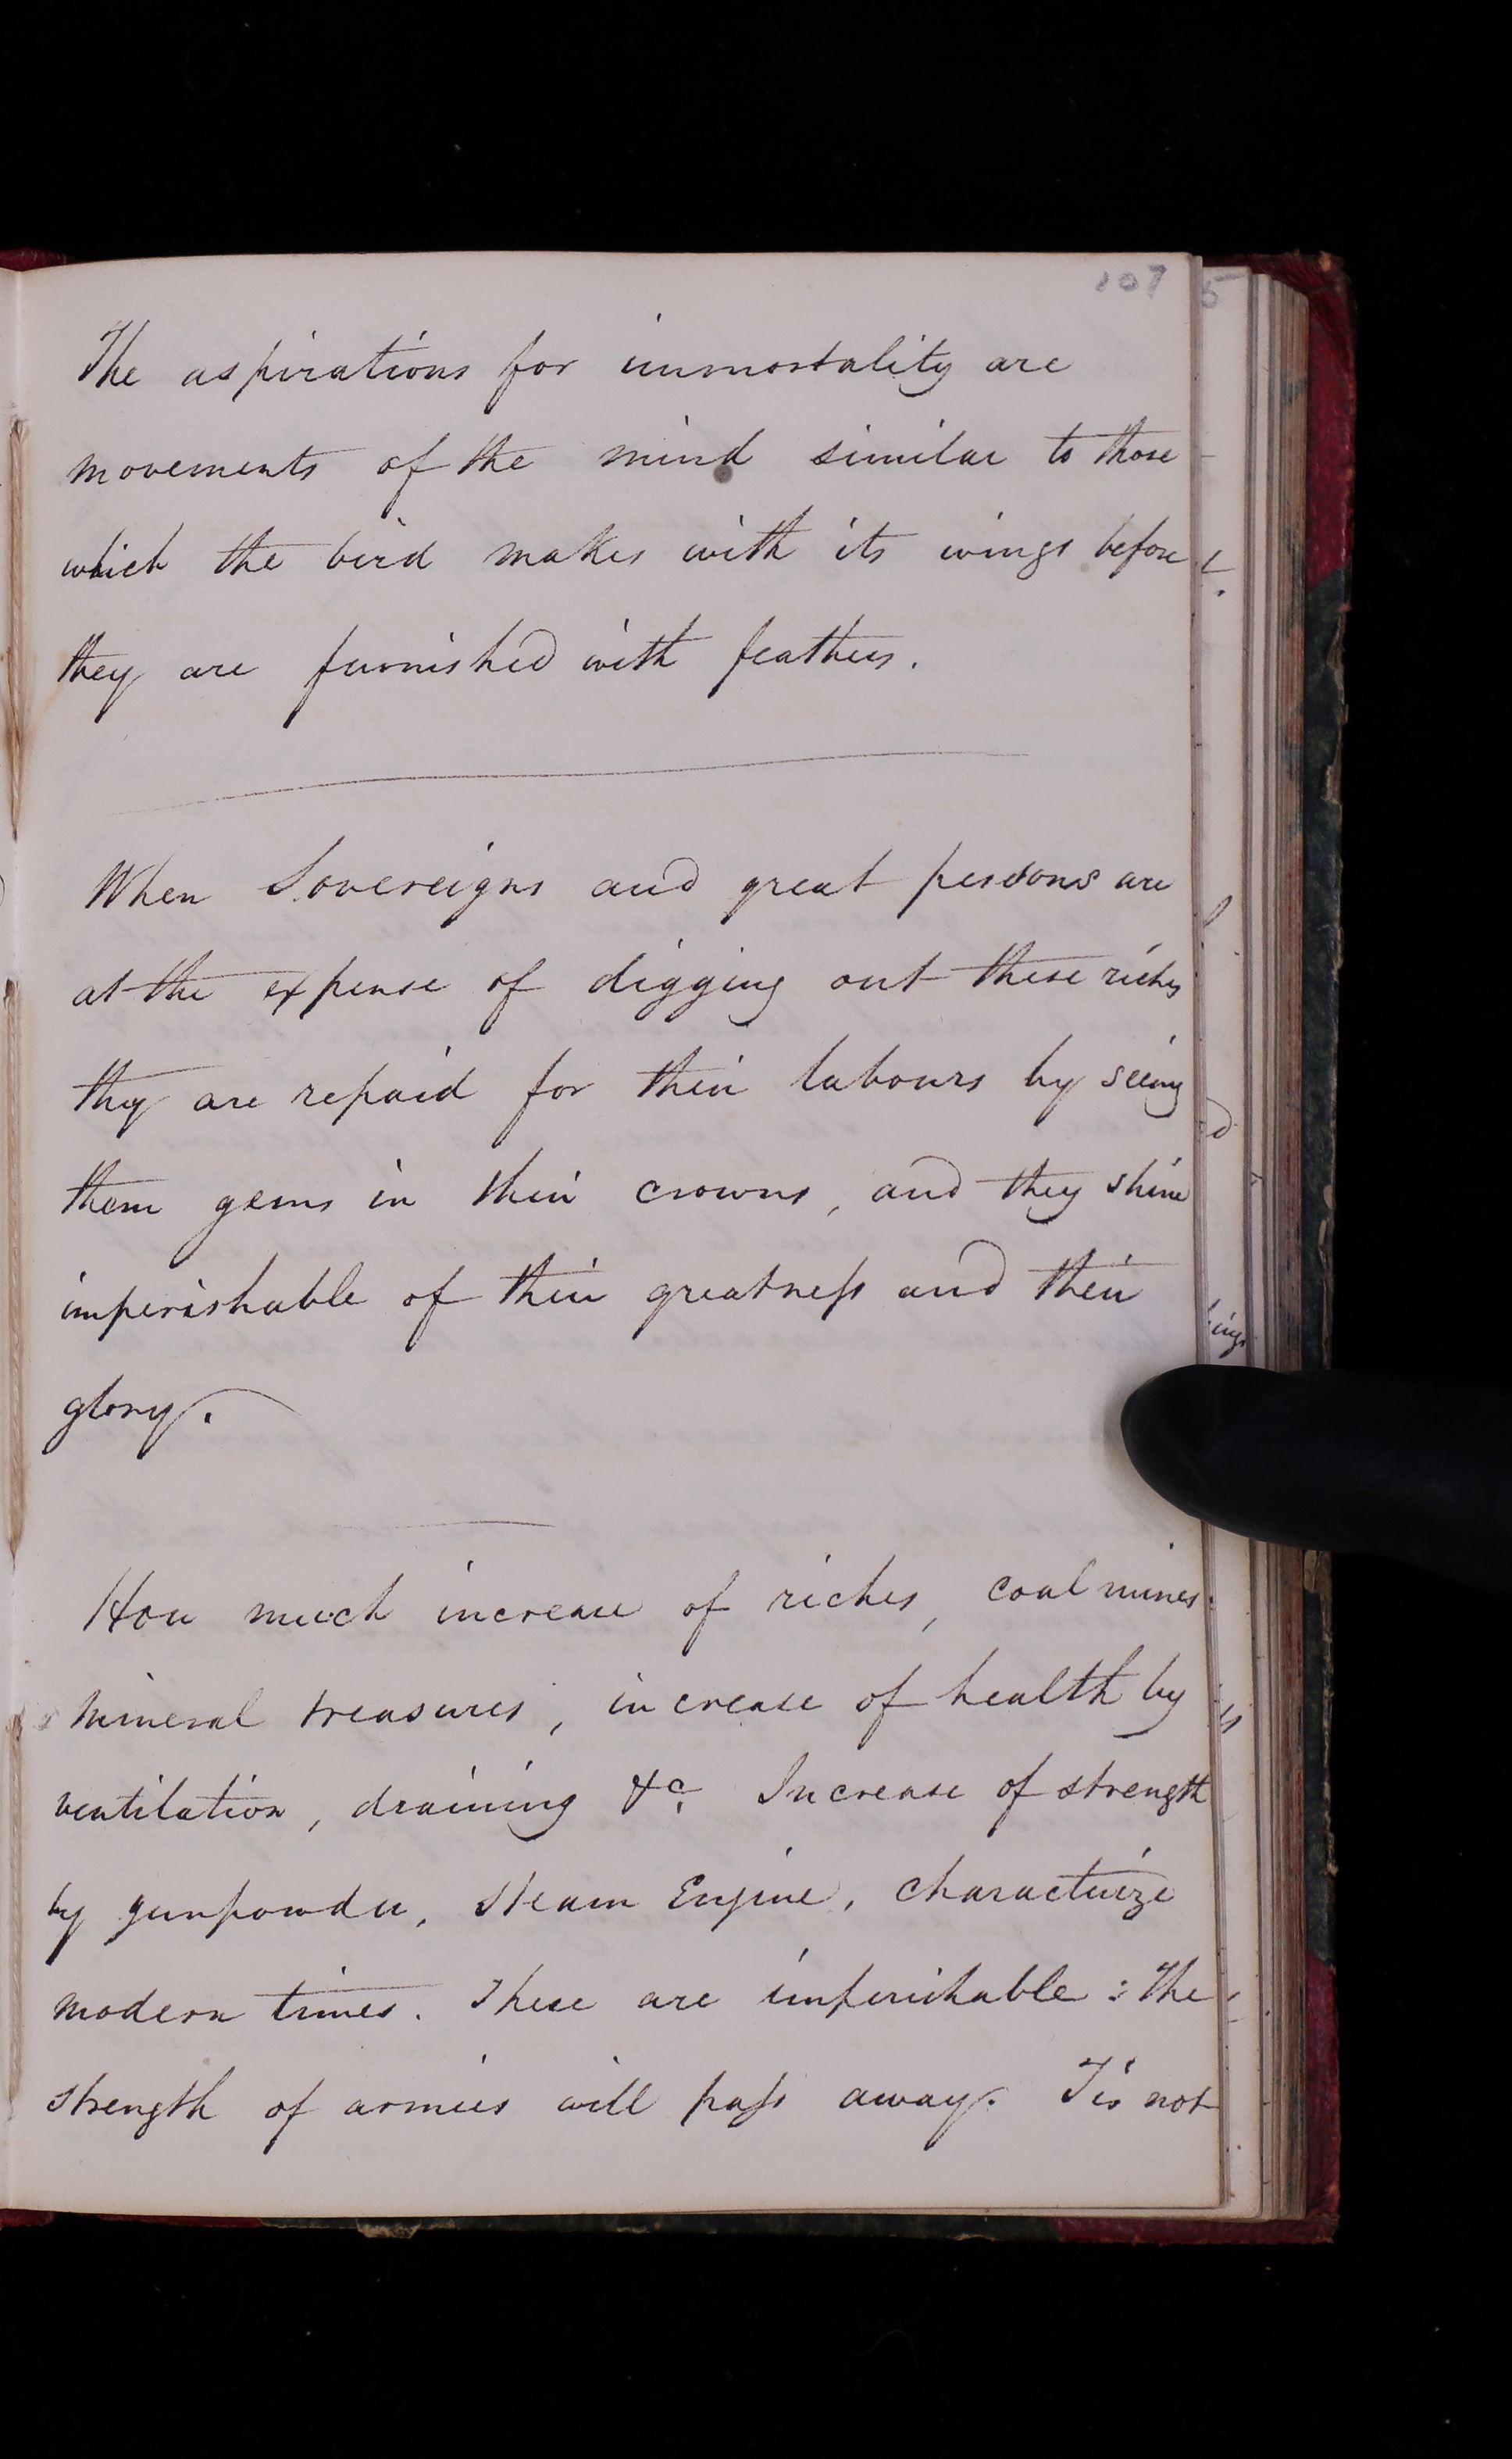 107
The aspirations for immortality are
movements of the mind similar to those
which the bird makes with its wings before
they are furnished with feathers.
When Sovereigns and great persons are
at the expense of digging out these riches
they are repaid for their labours by seeing
them gems in their crowns, and they shine
imperishable of their greatness and their
glory.
How much increase of riches, coal mines
mineral treasures, increase of health by
ventilation, draining &c. Increase of strength
by gunpowder, Steam Engine, characterize
modern times. These are imperishable: The
strength of armies will pass away. Tis not